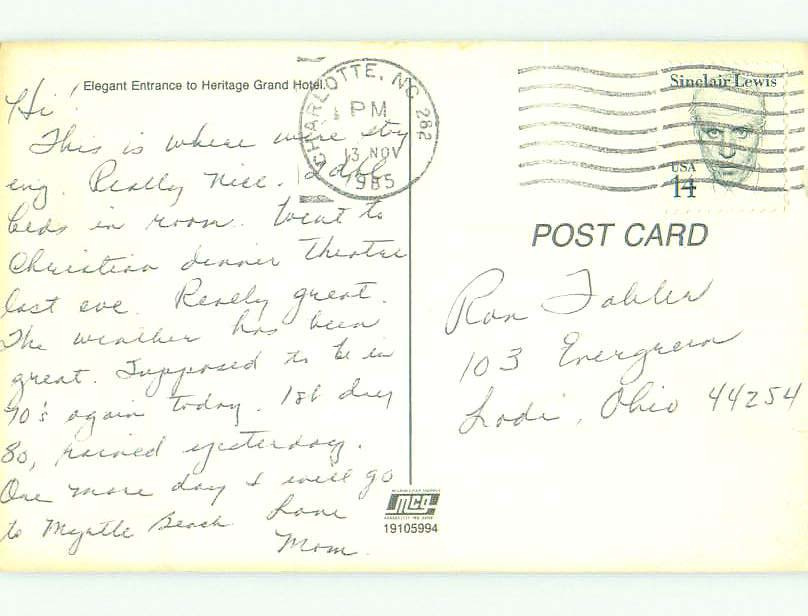 Elegant Entrance to Heritage Grand Hotel.
Hi!
This is where we're stay
ing. Really nice. 2 dbl
beds in room. Went to
Christian dinner theatre
last eve. Really great.
The weather has been
great. Supposed to be in
70's again today. 1st day
80, rained yesterday.
One more day & will go
to Myrtle Beach Love
Mom
CHARLOTTE, NC 282
PM
13 NOV
1985
Sinclair Lewis
USA
14
POST CARD
Ron Fabler
103 Evergreen
Lodi, Ohio 44254
MCG
19105994